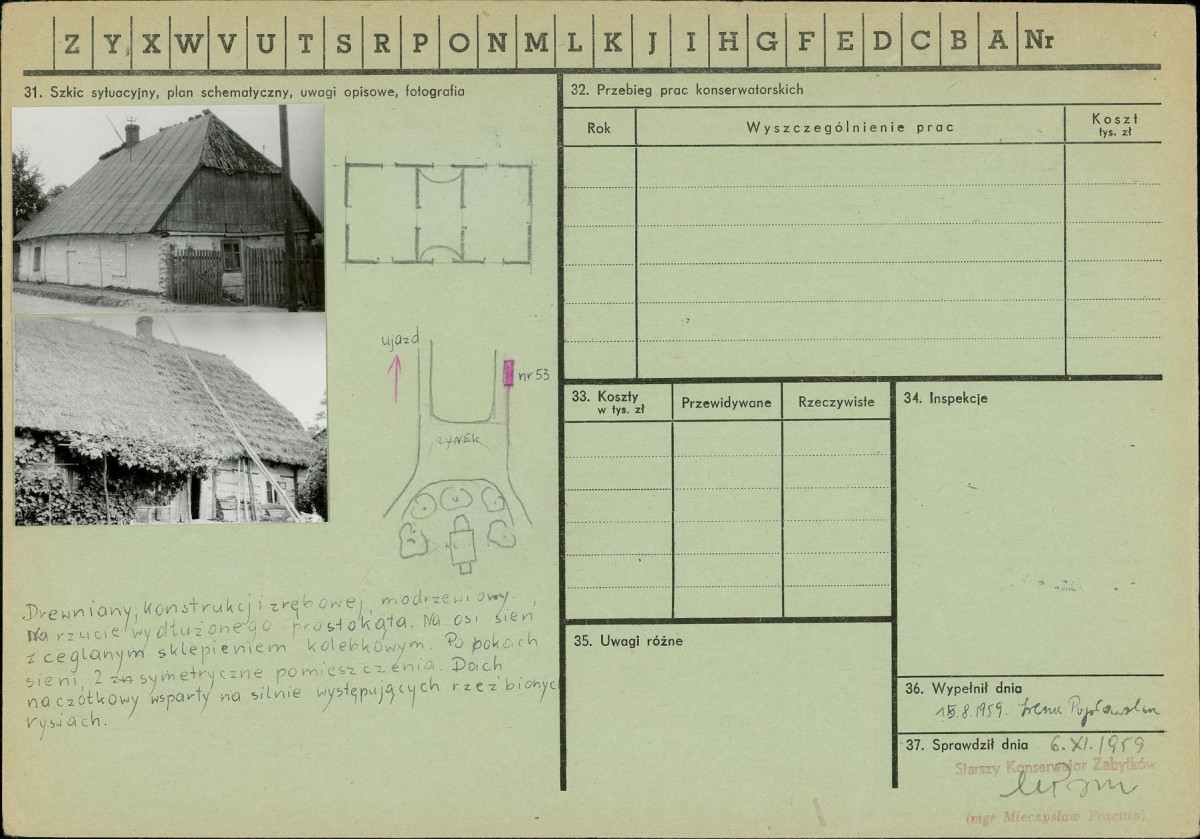 Z Y X W V U T S R P O N M L K J I H G F E D C B A Nr
31. Szkic sytuacyjny, plan schematyczny, uwagi opisowe, fotografia
ujazd
nr 53
RYNEK
Drewniany, konstrukcji zrębowej, modrzewiowy.
Na rzucie wydłużonego prostokąta. Na osi sień
z ceglanym sklepieniem kolebkowym. Po bokach
sieni, 2 symetryczne pomieszczenia. Dach
naczółkowy wsparty na silnie występujących rzeźbionych
rysiach.
32. Przebieg prac konserwatorskich
Rok
Wyszczególnienie prac
Koszł
tys. zł
33. Koszty
w tys. zł
Przewidywane
Rzeczywiste
34. Inspekcje
35. Uwagi różne
36. Wypełnił dnia
15.8.1959. Irena
37. Sprawdził dnia 6.XI.1959
Starszy Konserwator Zabytków
(mgr Mieczysław Pracuta)